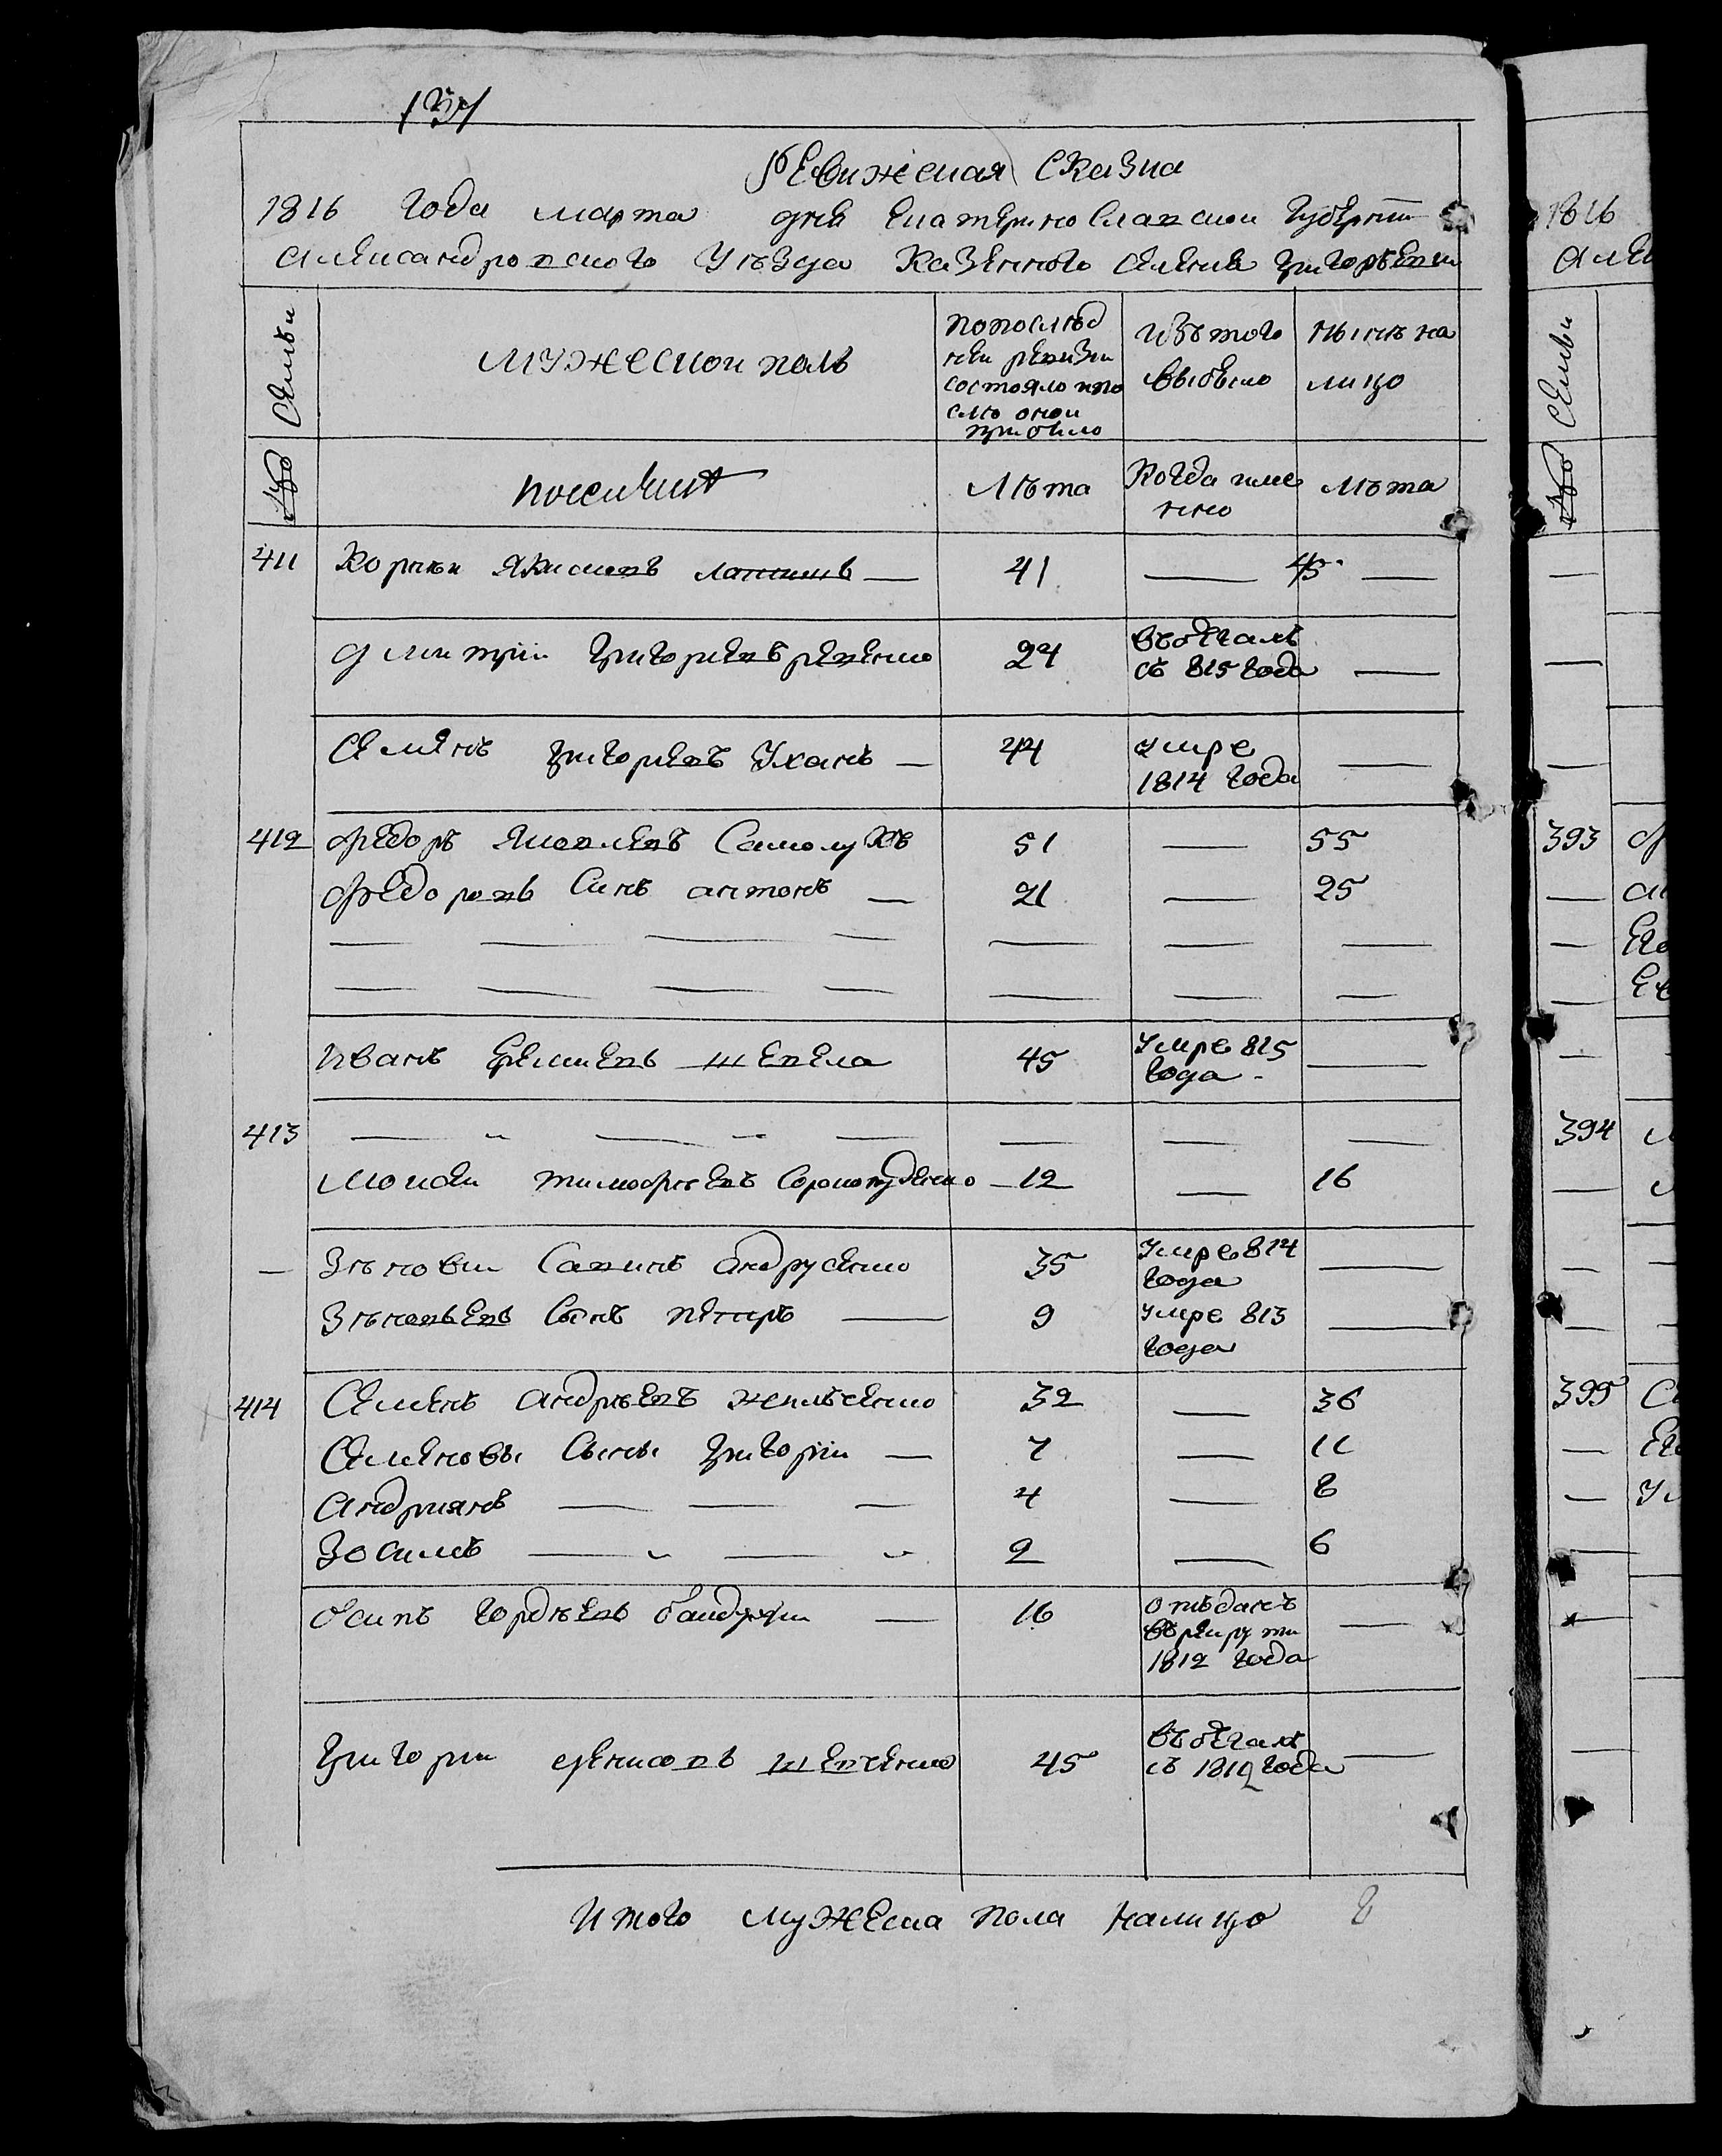 Ревижская Сказка
1816 года марта дня Екатеринославской Губернии
Александровского Уезда Казенного селения Григоревки
Семьи
мужеской полъ
попослед
ней ревизии
состояло ипо
сле оной
прибыло
Изъ того
выбыло
ныне на
лицо
№
Лета
Когда име
нно
Лета
411 Корней Якимовъ 41 — 45 —
Дмитрий Григориевъ Ревенко 24 въбегахъ
съ 815 года —
Семенъ Григориевъ Ухань — 44 умре
1814 года —
412 Федоръ Яковлевъ Самолухъ 51 — 55
Федоровъ Синъ антонъ — 21 — 25
Иванъ Ереміевъ шепела 45 Умре 815
года —
413 — — — — — —
Моисей тимофеевъ Сорокопуденко 12 — 16
— Зеновий Савинъ андрусенко 35 Умре 814
года —
Зеновьевъ Сынъ петръ — 9 Умре 813
года —
414 Семенъ андреевъ 32 — 36
Семеновы Сыны Григорій — 7 — 11
Андриянъ — — — 4 — 8
Зосимъ — — 2 — 6
Осипъ гордеевъ — 16 отъданъ
въ рекруты
1812 года —
Григорий денисовъ шевченко 45 въбегахъ
съ 1812 года —
Итого мужеска пола налицо 8
1816
Семьи
№
393
394
395